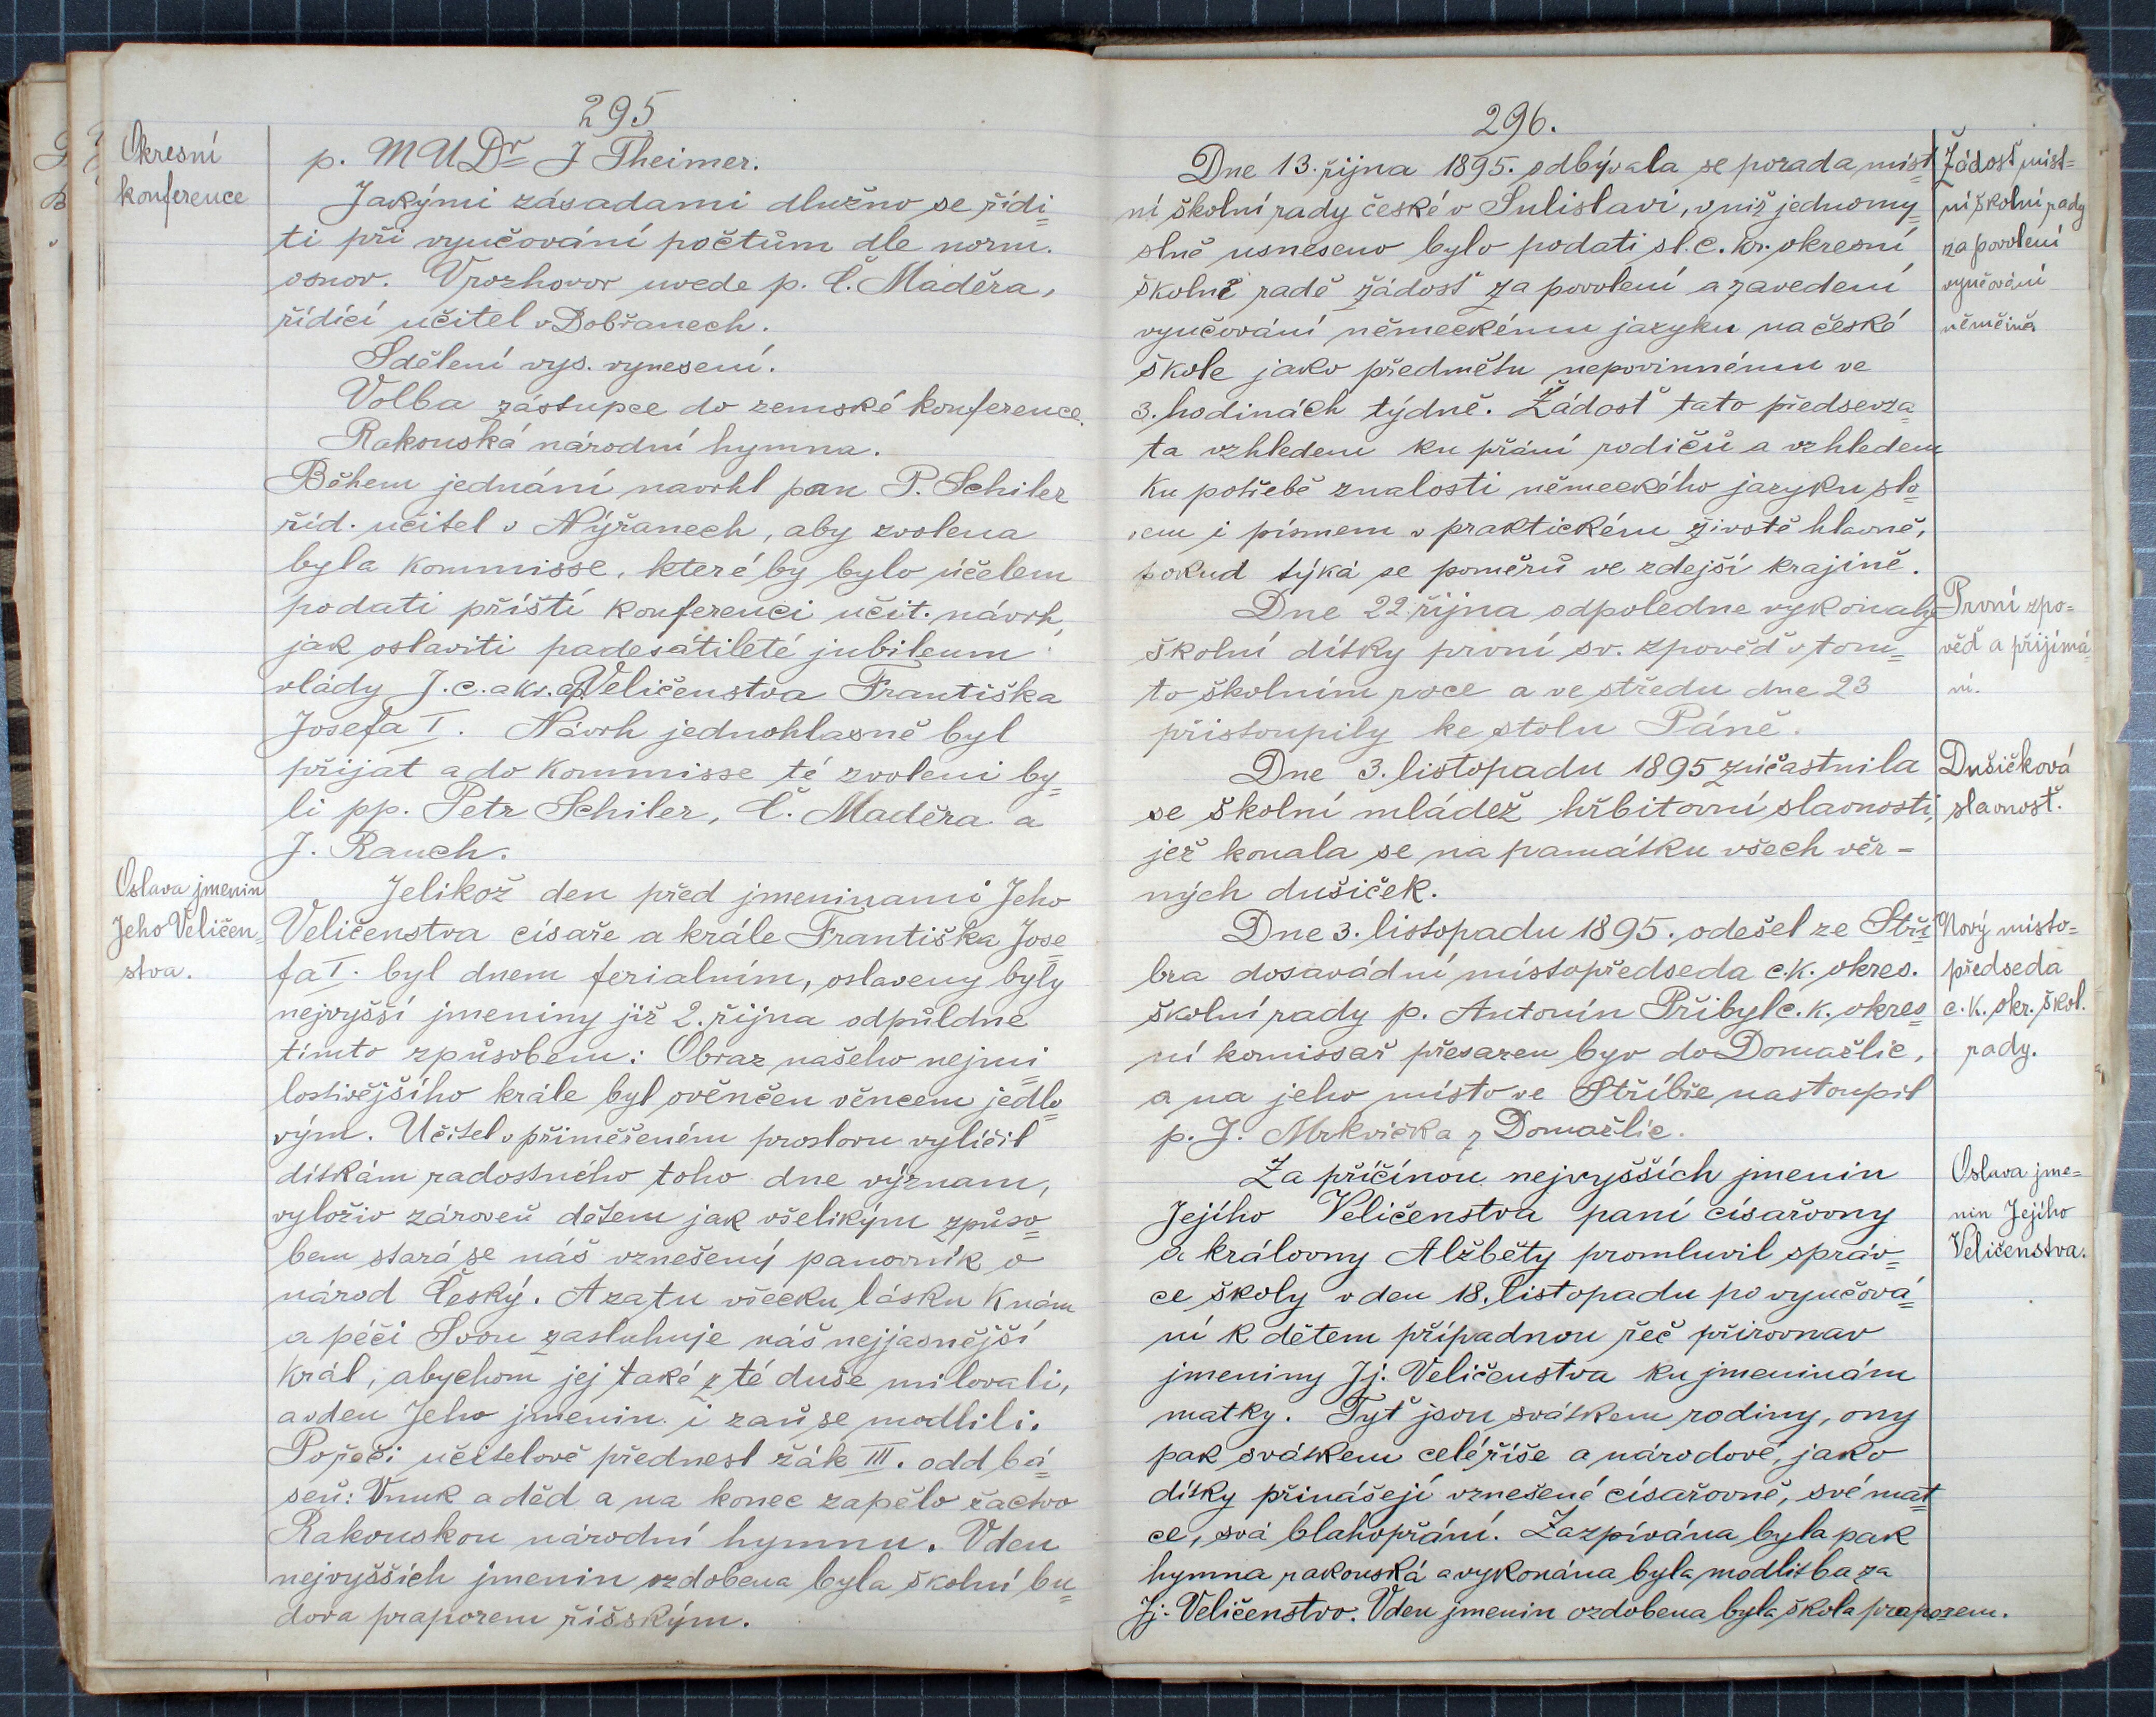 295
Okresní
konference
p. MUDr J Theimer.
Jakými zásadami dlužno se řídi=
ti při vyučování počtům dle norm.
osnov. V rozhovor uvede p. Č. Maděra,
řídící učitel v Dobřanech.
Sdělení vys. vynesení.
Volba zástupce do zemské konference.
Rakouská národní hymna.
Během jednání navrhl pan P. Schiler
říd. učitel v Nýřanech, aby zvolena
byla kommisse, které by bylo účelem
podati příští konferenci učit. návrh,
jak oslaviti padesátileté jubileum
vlády J. c. a kr. ap. Veličenstva Františka
Josefa I. Návrh jednohlasně byl
přijat a do kommisse té zvoleni by=
li pp. Petr Schiler, Č. Maděra a
J. Rauch.
Oslava jmenin
Jeho Veličen=
stva.
Jelikož den před jmeninami Jeho
Veličenstva císaře a krále Františka Jose=
fa I. byl dnem ferialním, oslaveny byly
nejvyšší jmeniny již 2. října odpůldne
tímto způsobem: Obraz našeho nejmi=
lostivějšího krále byl ověnčen věncem jedlo=
vým. Učitel v přiměřeném proslovu vylíčil
dítkám radostného toho dne význam,
vyloživ zároveň dětem jak všelikým způso=
bem stará se náš vznešený panovník o
národ Český. A za tu všecku lásku k nám
a péči Svou zasluhuje náš nejjasnější
král, abychom jej také z té duše milovali,
a v den Jeho jmenin i zaň se modlili.
Po řeči učitelově přednesl žák III. odd bá=
seň: Vnuk a děd a na konec zapělo žactvo
Rakouskou národní hymnu. V den
nejvyšších jmenin ozdobena byla školní bu=
dova praporem říšským.
296.
Dne 13. října 1895. odbývala se porada míst=
ní školní rady české v Sulislavi, v níž jednomy=
slně usneseno bylo podati sl. c. kr. okresní
školní radě žádosť za povolení a zavedení
vyučování německému jazyku na české
škole jako předmětu nepovinnému ve
3. hodinách týdně. Žádosť tato předsevza=
ta vzhledem ku přání rodičů a vzhledem
ku potřebě znalosti německého jazyku slo=
vem i písmem v praktickém životě hlavně,
pokud týká se poměrů ve zdejší krajině.
Žádosť míst=
ní školní rady
za povolení
vyučování
němčině
Dne 22. října odpoledne vykonaly
školní dítky první sv. zpověď v tom=
to školním roce a ve středu dne 23
přistoupily ke stolu Páně.
První zpo=
věď a přijímá=
ní.
Dne 3. listopadu 1895 zúčastnila
se školní mládež hřbitovní slavnosti,
jež konala se na památku všech věr=
ných dušiček.
Dušičková
slavnosť.
Dne 3. listopadu 1895. odešel ze Stří=
bra dosavádní místopředseda c. k. okres.
školní rady p. Antonín Přibyl c. k. okres=
ní komissař přesazen byv do Domažlic,
a na jeho místo ve Stříbře nastoupil
p. J. Mrkvička z Domažlic.
Nový místo=
předseda
c. k. okr. škol.
rady.
Za příčinou nejvyšších jmenin
Jejího Veličenstva paní císařovny
a královny Alžběty promluvil správ=
ce školy v den 18. listopadu po vyučová=
ní k dětem případnou řeč přirovnav
jmeniny Jj. Veličenstva ku jmeninám
matky. Tyť jsou svátkem rodiny, ony
pak svátkem celé říše a národové, jako
dítky přinášejí vznešené císařovně, své mat=
ce, svá blahopřání. Zazpívána byla pak
hymna rakouská a vykonána byla modlitba za
Jj. Veličenstvo. V den jmenin ozdobena byla škola praporem.
Oslava jme=
nin Jejího
Veličenstva.